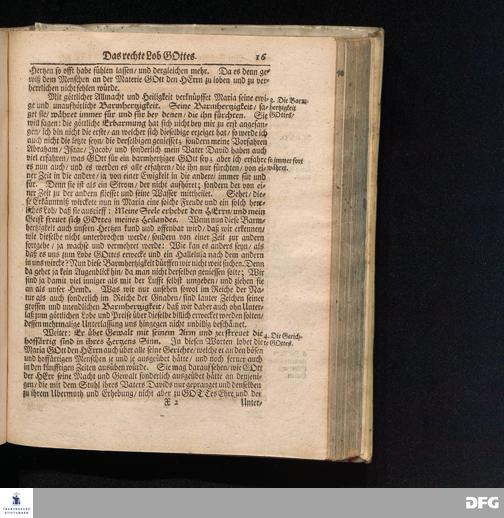 Das rechte Lob GOttes. 16
Hertzen so offt habe fühlen lassen/ und dergleichen mehr. Da es denn ge-
wiß dem Menschen an der Materie GOtt den HErrn zu loben und zu ver-
herrlichen nicht fehlen würde.
Mit göttlicher Allmacht und Heiligkeit verknüpffet Maria seine ewi-
ge und unaufhörliche Barmhertzigkeit. Seine Barmhertzigkeit/ sa-
get sie/ währet immer für und für bey denen/ die ihn fürchten. Sie
3. Die Barm-
hertzigkeit
GOttes/
will sagen: die göttliche Erbarmung hat sich nicht bey mir zu erst angefan-
gen/ Ich bin nicht die erste/ an welcher sich dieselbige erzeiget hat/ so werde ich
auch nicht die letzte seyn/ die derselbigen geniesset; sondern meine Vorfahren
Abraham/ Isaac/ Jacob/ und sonderlich mein Vater David haben auch
viel erfahren/ was GOtt für ein barmhertziger GOtt sey; aber ich erfahre
es nun auch/ und es werden es alle erfahren/ die ihn nur fürchten/ von ei-
so immer fort
währet.
ner Zeit in die andere/ ja von einer Ewigkeit in die andere/ immer für und
für. Denn sie ist als ein Strom/ der nicht aufhöret; sondern der von ei-
ner Zeit zu der andern fliesset und seine Wasser mittheilet. Sehet/ die-
se Erkäntniß wirckete nun in Maria eine solche Freude und ein solch herr-
liches Lob/ daß sie ausrieff: Meine Seele erhebet den HErrn/ und mein
Geist freuet sich GOttes meines Heilandes. Wenn nun diese Barm-
hertzigkeit auch unsern Hertzen kund und offenbar wird/ daß wir erkennen/
wie dieselbe nicht unterbrochen werde/ sondern von einer Zeit zur andern
fortgehe/ ja wachse und vermehret werde: Wie kan es anders seyn/ als
daß es uns zum Lobe GOttes erwecke und ein Halleluja nach dem andern
in uns wircke? Nun diese Barmhertzigkeit dürffen wir nicht weit suchen. Denn
da gehet ja kein Augenblick hin/ da man nicht derselben geniessen solte; Wir
sind ja damit viel inniger als mit der Lufft selbst umgeben/ und ziehen sie
an als unser Hemd. Was wir nur ansehen sowol im Reiche der Na-
tur als auch sonderlich im Reiche der Gnaden/ sind lauter Zeichen seiner
grossen und unendlichen Barmhertzigkeit/ daß wir daher auch ohn Unter-
laß zum göttlichen Lobe und Preise über dieselbe billich erwecket werden solten/
dessen mehrmalige Unterlassung uns hingegen nicht unbillig beschämet.
Weiter: Er übet Gewalt mit seinem Arm und zerstreuet die
hoffärtig sind in ihres Hertzens Sinn. Zu diesen Worten lobet die
4. Die Gerich-
te GOttes.
Maria GOtt den HErrn auch über alle seine Gerichte/ welche er an den bösen
und hoffärtigen Menschen je und je ausgeübet hätte/ und noch ferner auch
in den künfftigen Zeiten ausüben würde. Sie mag darauf sehen/ wie GOtt
der HErr seine Macht und Gewalt sonderlich ausgeübet hätte an denjeni-
gen/ die mit dem Stuhl ihres Vaters Davids nur gepranget und denselben
zu ihrem Ubermuth und Erhebung/ nicht aber zu GOTTes Ehre und der
F 2 Unter-
FRANCKESCHE
STIFTUNGEN
DFG